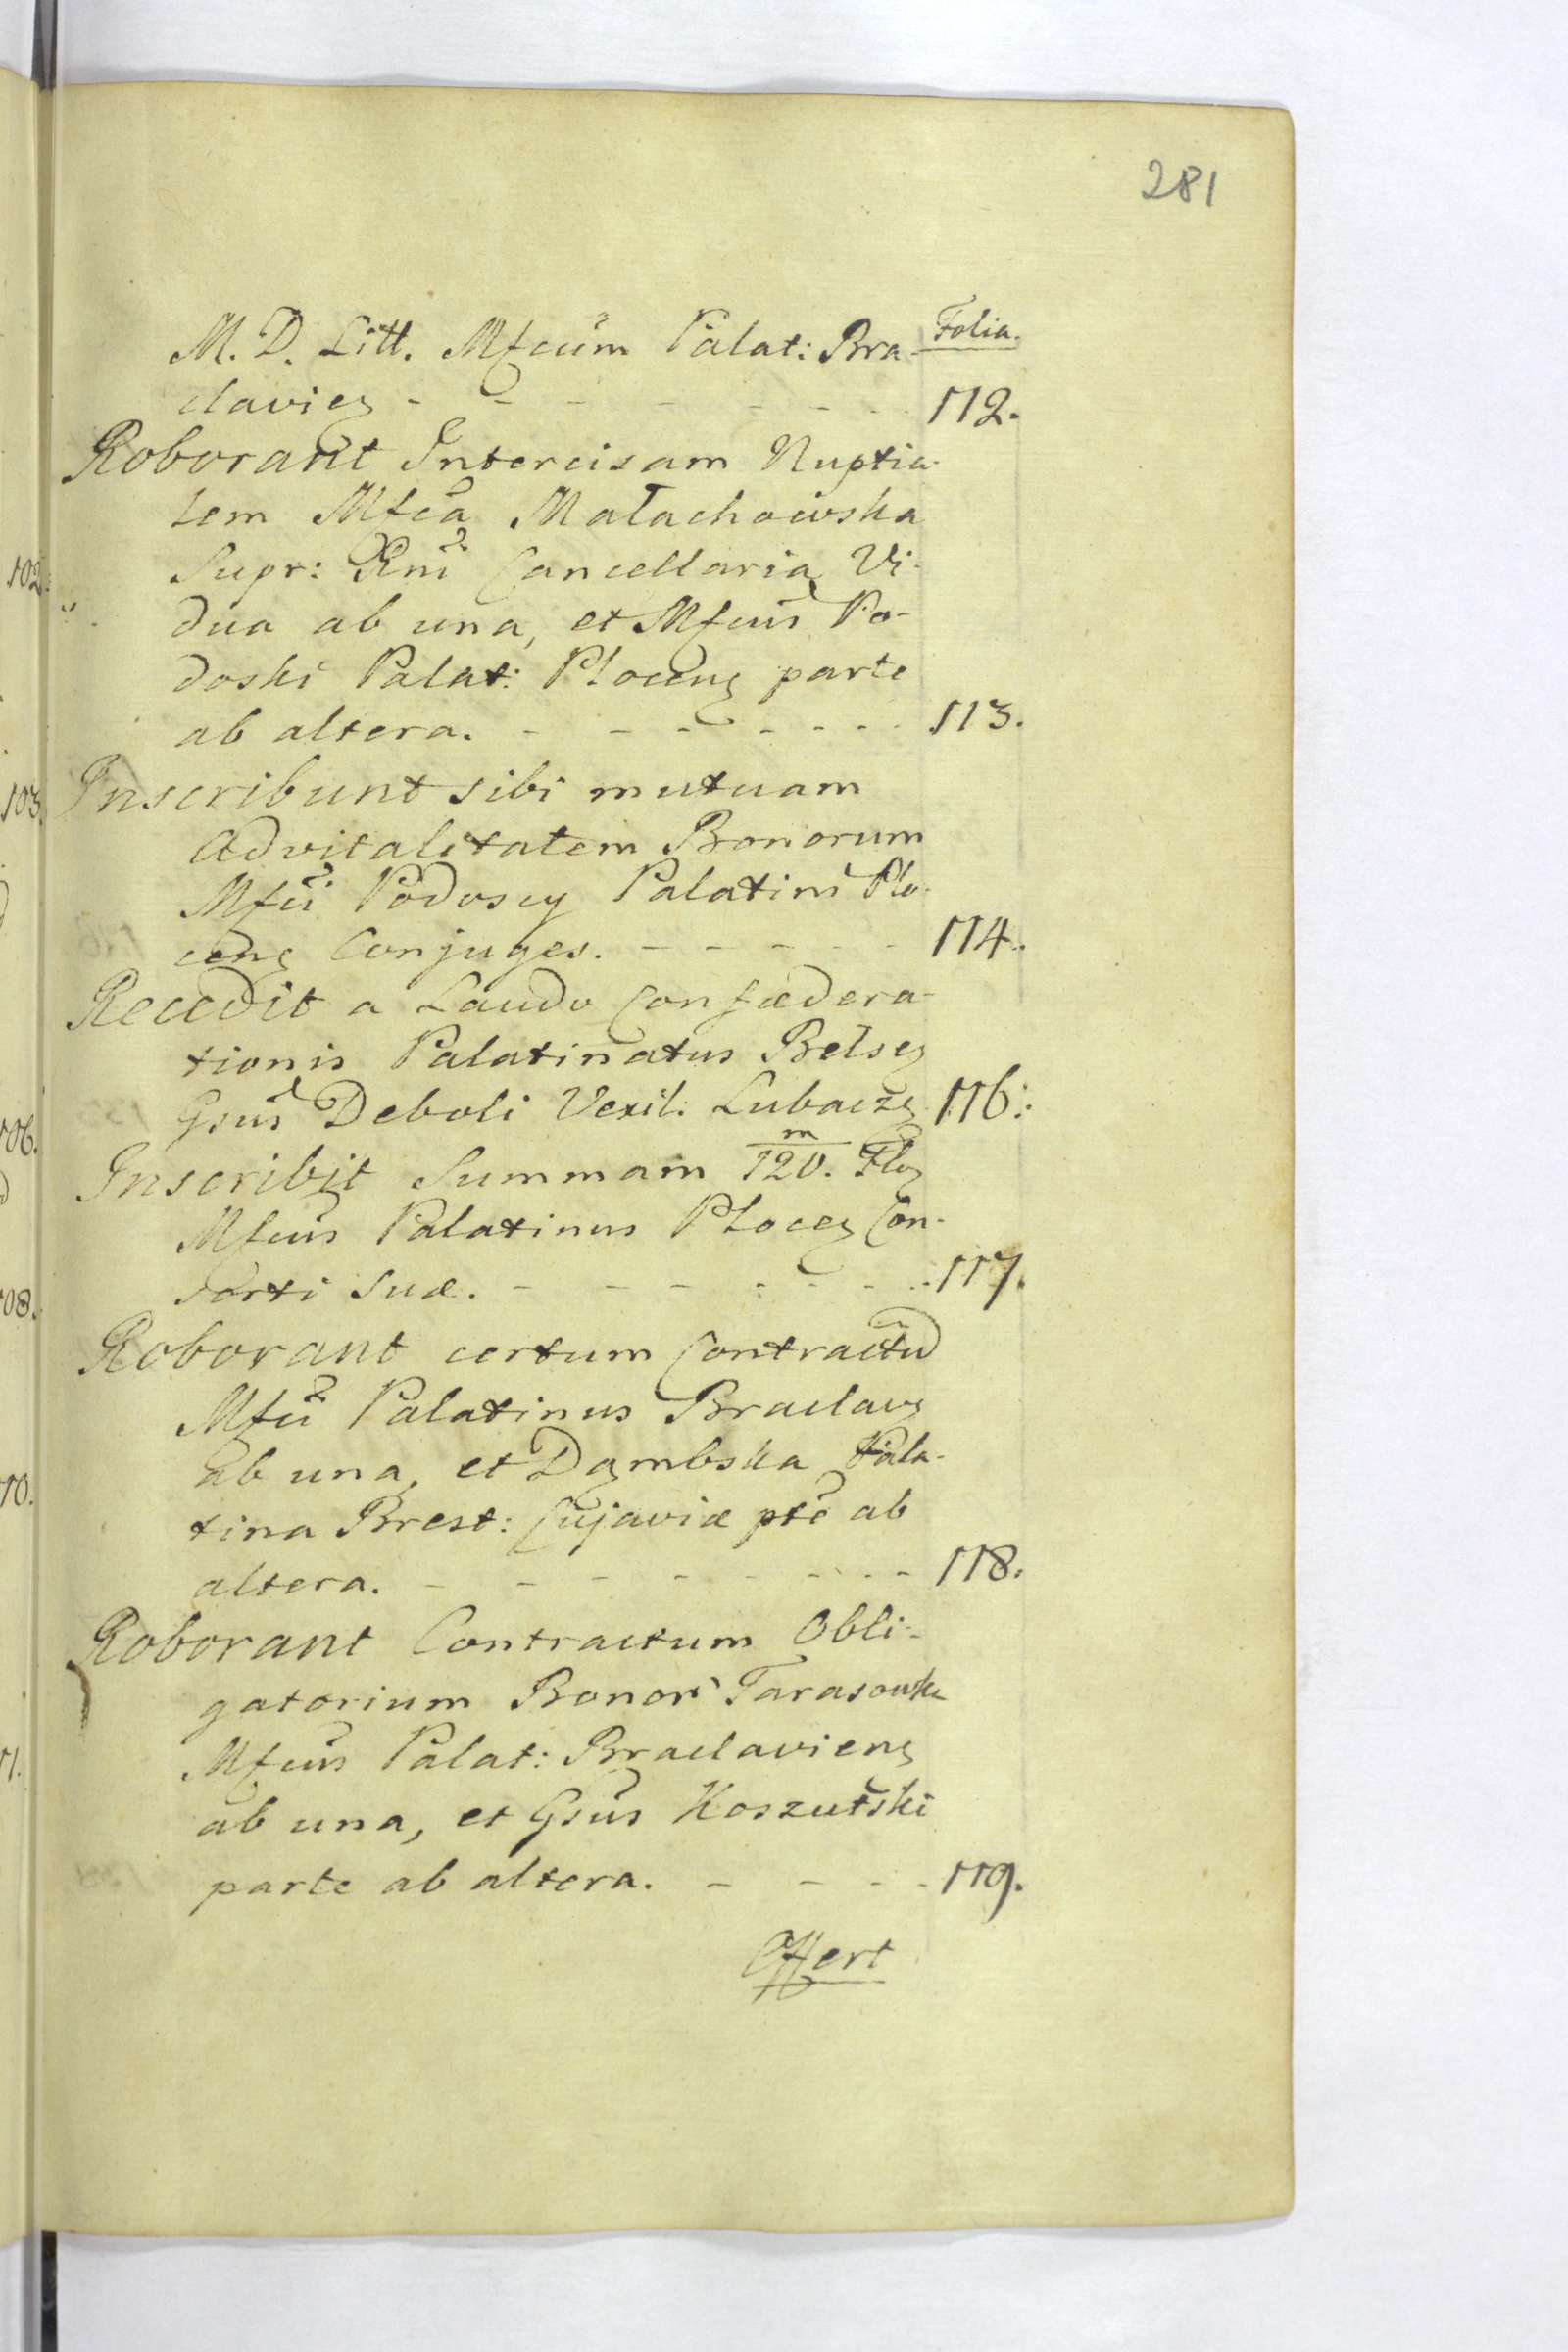 281
Folia.
M. D. Litt. Mfcum Palat: Bra-
claviẽ - - - - - - - 112.
Roborant Intercisam Nuptia-
lem Mfca Małachowska
Supr: Rni Cancellaria Vi-
dua ab una, et Mfcus Po-
doski Palat: Plocens parte
ab altera. - - - - - - 113.
Inscribunt sibi mutuam
Advitalitatem Bonorum
Mfci Podoscy Palatini Plo-
cens Conjuges. - - - - - 114.
Recedit a Laudo Confædera-
tionis Palatinatus Belsẽ
Gsus Deboli Vexil: Lubacz 116:
Inscribit Summam m/120. Flo
Mfcus Palatinus Plocẽ Con-
sorti suæ. - - - - - - - 117.
Roborant certum Contractũ
Mfcũ Palatinus Braclav
ab una, et Dąmbska Pala-
tina Brest: Cujaviæ pte ab
altera. - - - - - - - - 118.
Roborant Contractum Obli-
gatorium Bonor Tarasowka
Mfcus Palat: Braclaviens
ab una, et Gsus Koszutski
parte ab altera. - - - - 119.
Offert
102.
103.
106.
108.
110.
111.